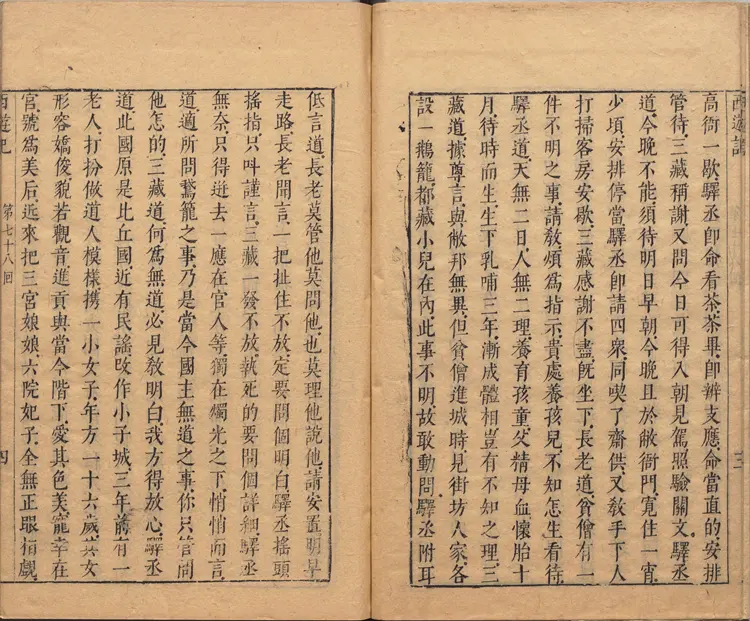 西遊記
高衙一歇驛丞即命看茶茶畢即辨支應命當直的安排
管待三藏稱謝又問今日可得入朝見駕照驗關文驛丞
道今晚不能須待明日早朝今晚且於敝衙門寬住一宵
少頃安排停當驛丞即請四衆同喫了齋供又敎手下人
打掃客房安歇三藏感謝不盡旣坐下長老道貧僧有一
件不明之事請敎煩爲指示貴處養孩兒不知怎生看待
驛丞道天無二日人無二理養育孩童父精母血懷胎十
月待時而生生下乳哺三年漸成體相豈有不知之理三
藏道據尊言與敝邦無異但貧僧進城時見街坊人家各
設一鵝籠都藏小兒在內此事不明故敢動問驛丞附耳
三
低言道長老莫管他莫問他也莫理他說他請安置明早
走路長老聞言一把扯住不放定要問個明白驛丞搖頭
搖指只叫謹言三藏一發不放執死的要問個詳細驛丞
無奈只得逬去一應在官人等獨在燭光之下悄悄而言
道適所問鵞籠之事乃是當今國主無道之事你只管問
他怎的三藏道何爲無道必見敎明白我方得放心驛丞
道此國原是比丘國近有民謠改作小子城三年前有一
老人打扮做道人模樣携一小女子年方一十六歲其女
形容嬌俊貌若觀音進貢與當今陛下愛其色美寵幸在
宮號爲美后近來把三宮娘娘六院妃子全無正眼相覷
西遊記
第七十八回
四